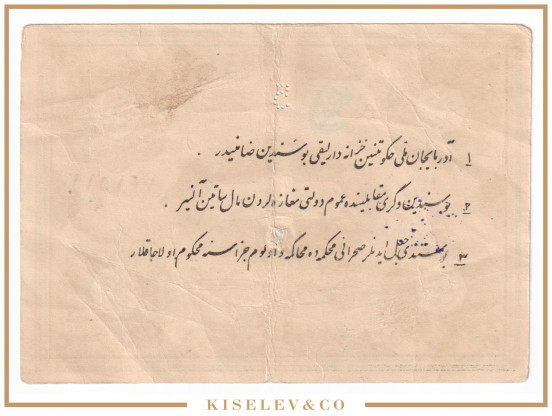 ۱ آذربایجان ملی حکومتینین خزانه دارلیقی بو سندین ضامنیدیر .
۲ بو سندین دگری مقابلینده عموم دولتی مغازه لردن مال ساتین آلنیر .
۳ بو سندی جعل ایدنلر صحرائی محکمه ده محاکمه و اولوم جزاسنه محکوم اولاجاقلار
KISELEV&CO